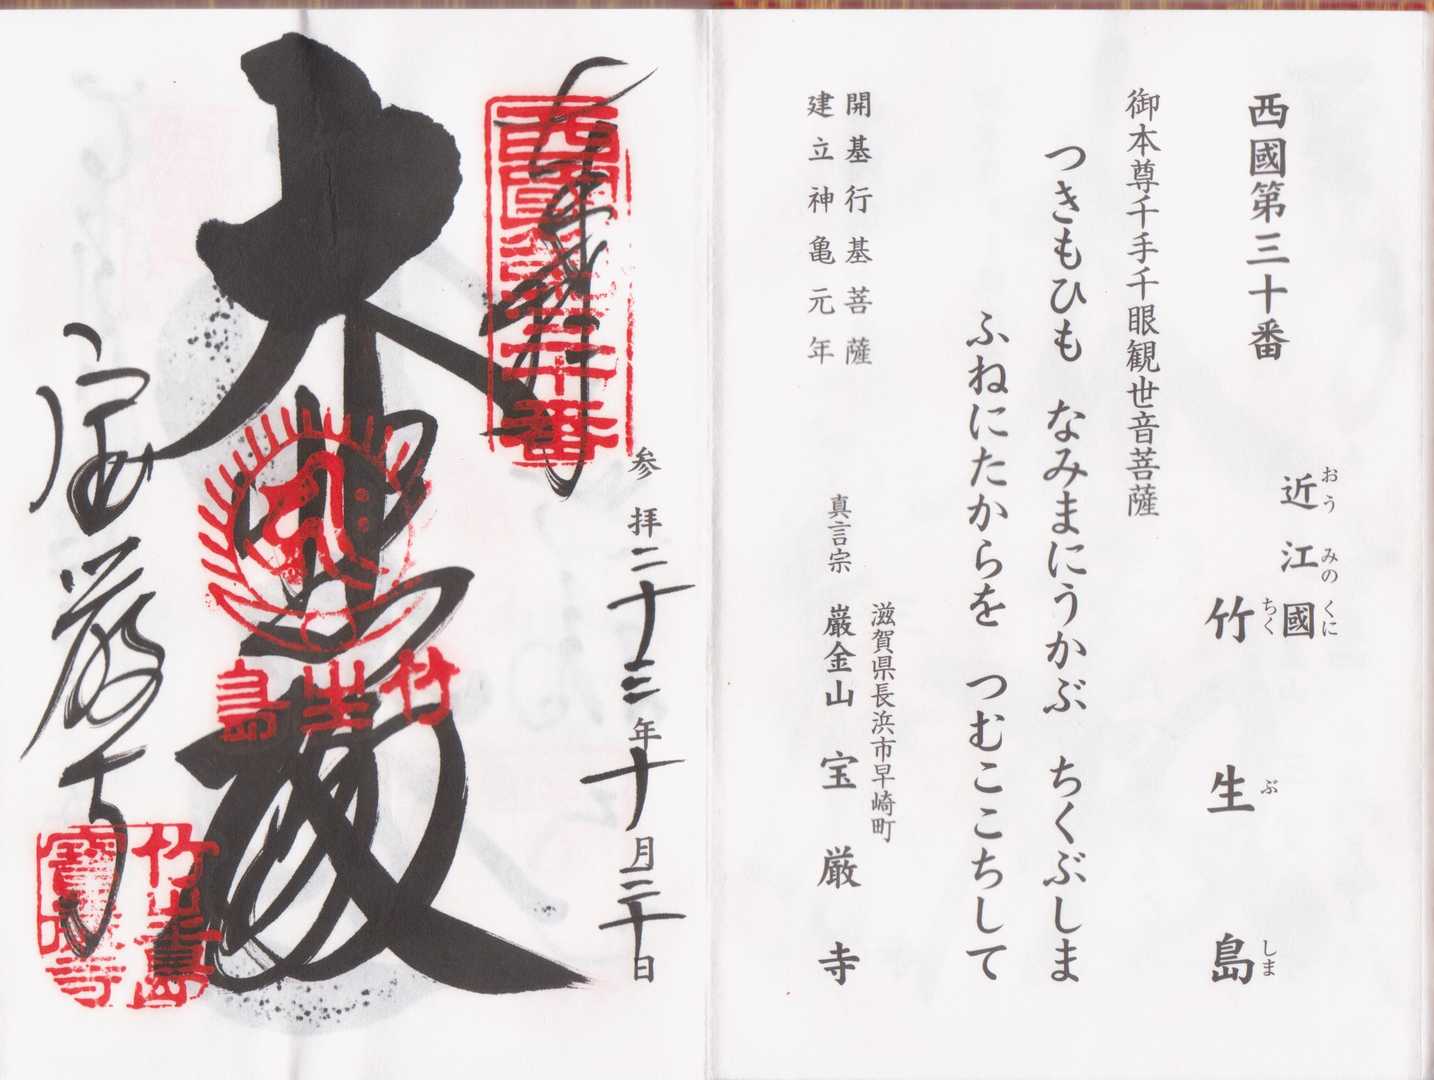 西國第三十番
近江國
おうみのくに
竹生島
ちくぶしま
御本尊千手千眼観世音菩薩
つきもひも なみまにうかぶ ちくぶしま
ふねにたからを つむここちして
開基行基菩薩
建立神亀元年
滋賀県長浜市早崎町
真言宗 巌金山 宝厳寺
参拝二十三年十月三十日
西國第三十番
大悲殿
竹生島
宝厳寺
竹生島